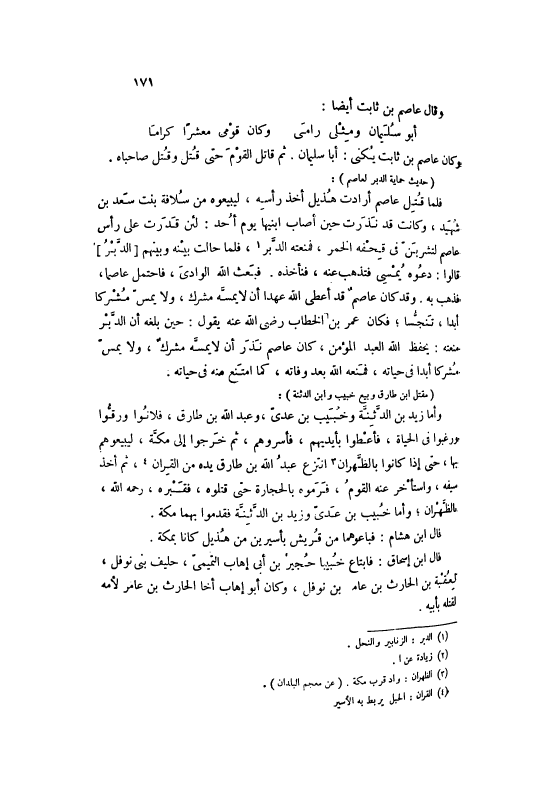 ١٧١
وقال عاصم بن ثابت أيضا :
أبو سُلَيمان ومِثْلى رامَى وكان قَوْمى مَعشَرًا كراما
وكان عاصم بن ثابت يُكْنى : أبا سليمان . ثم قاتل القومَ حتى قُتل وقُتل صاحباه .
( حديث حماية الدبر لعاصم ) :
فلما قُتِل عاصم أرادت هُذَيل أخذ رأسِه ، ليبيعوه من سُلافة بنت سعد بن
شُهَيد ، وكانت قد نَذَرت حين أصاب ابنيها يوم أُحد : لئن قَدَرت على رأس
عاصم لتشربنّ فى قِحْفه الخمر ، فمنعته الدَّبْر١ ، فلما حالت بينْه وبينهم [ الدَّبْرُ ]٢
قالوا : دعُوه يُمْسِى فتذهب عنه ، فنأخذه . فبَعث الله الوادىَ ، فاحتمل عاصما ،
فذهب به . وقد كان عاصم قد أعطَى الله عهدا أن لايمسَّه مشرك ، ولا يمسّ مُشْركا
أبدا ، تنجُّسا ؛ فكان عمر بن الخطاب رضى الله عنه يقول : حين بلغه أن الدَّبْر
منعته : يحفظ الله العبد المؤمن ، كان عاصم نَذَر أن لايمسَّه مشركٌ ، ولا يمسّ
مُشركا أبدا فى حياته ، فمَنعه الله بعد وفاته ، كما امتنَع منه فى حياته .
( مقتل ابن طارق وبيع خبيب وابن الدثنة ) :
وأما زيد بن الدَّثِنَّة وخُبَيب بن عدىّ ، وعبد الله بن طارق ، فلانُوا ورقُّوا
ورغبوا فى الحياة ، فأعْطوا بأيديهم ، فأسروهم ، ثم خَرجوا إلى مكَّة ، ليبيعوهم
بها ، حتى إذا كانوا بالظَّهْران٣ انتزع عبدُ الله بن طارق يده من القِران ٤ ، ثم أخذ
سيفه ، واستأخر عنه القومُ ، فرَموه بالحجارة حتى قتلوه ، فقَبْره ، رحمه الله ،
بالظَّهْران ؛ وأما خُبيب بن عَدىّ وزيد بن الدَّثِنَّة فقدموا بهما مكة .
قال ابن هشام : فباعوهما من قُريش بأسيرين من هُذَيل كانا بمكة .
قال ابن إسحاق : فابتاع خُبيبا حُجيرْ بن أبى إهاب التَّميمىّ ، حليف بنى نوفل ،
لعُقْبة بن الحارث بن عامر بن نوفل ، وكان أبو إهاب أخا الحارث بن عامر لأمه
لقتله بأبيه .
(١) الدبر : الزنابير والنحل .
(٢) زيادة عن ا .
(٣) الظهران : واد قرب مكة . ( عن معجم البلدان ) .
(٤) القران : الحبل يربط به الأسير